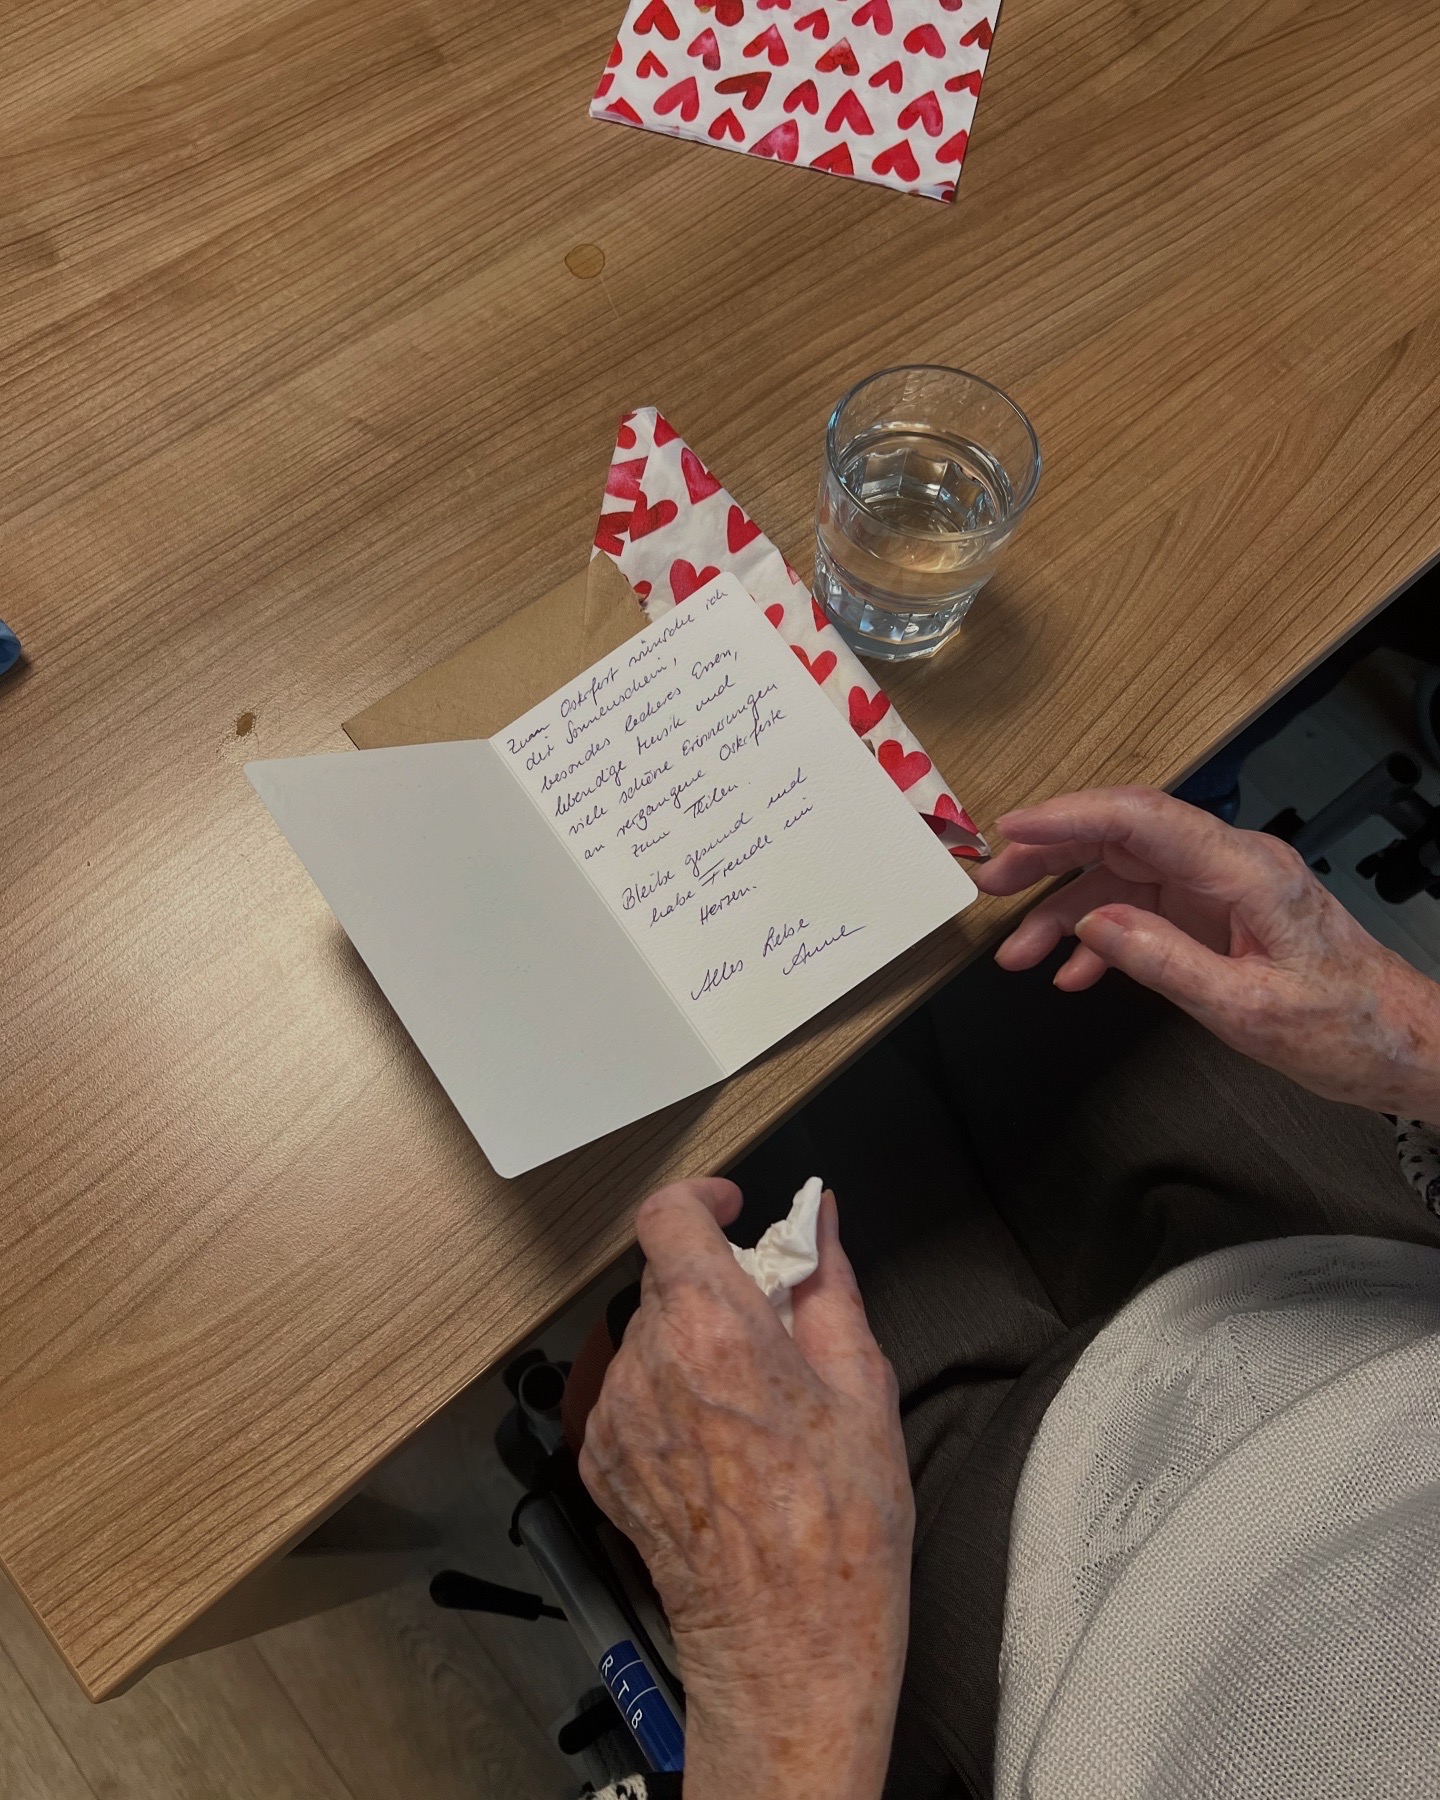 Zum Osterfest wünsche ich
dir Sonnenschein,
besondes leckeres Essen,
lebendige Musik und
viele schöne Erinnerungen
an vergangene Osterfeste
zum Teilen.
Bleibe gesund und
habe Freude im
Herzen.
Alles Liebe
Anne
RTB